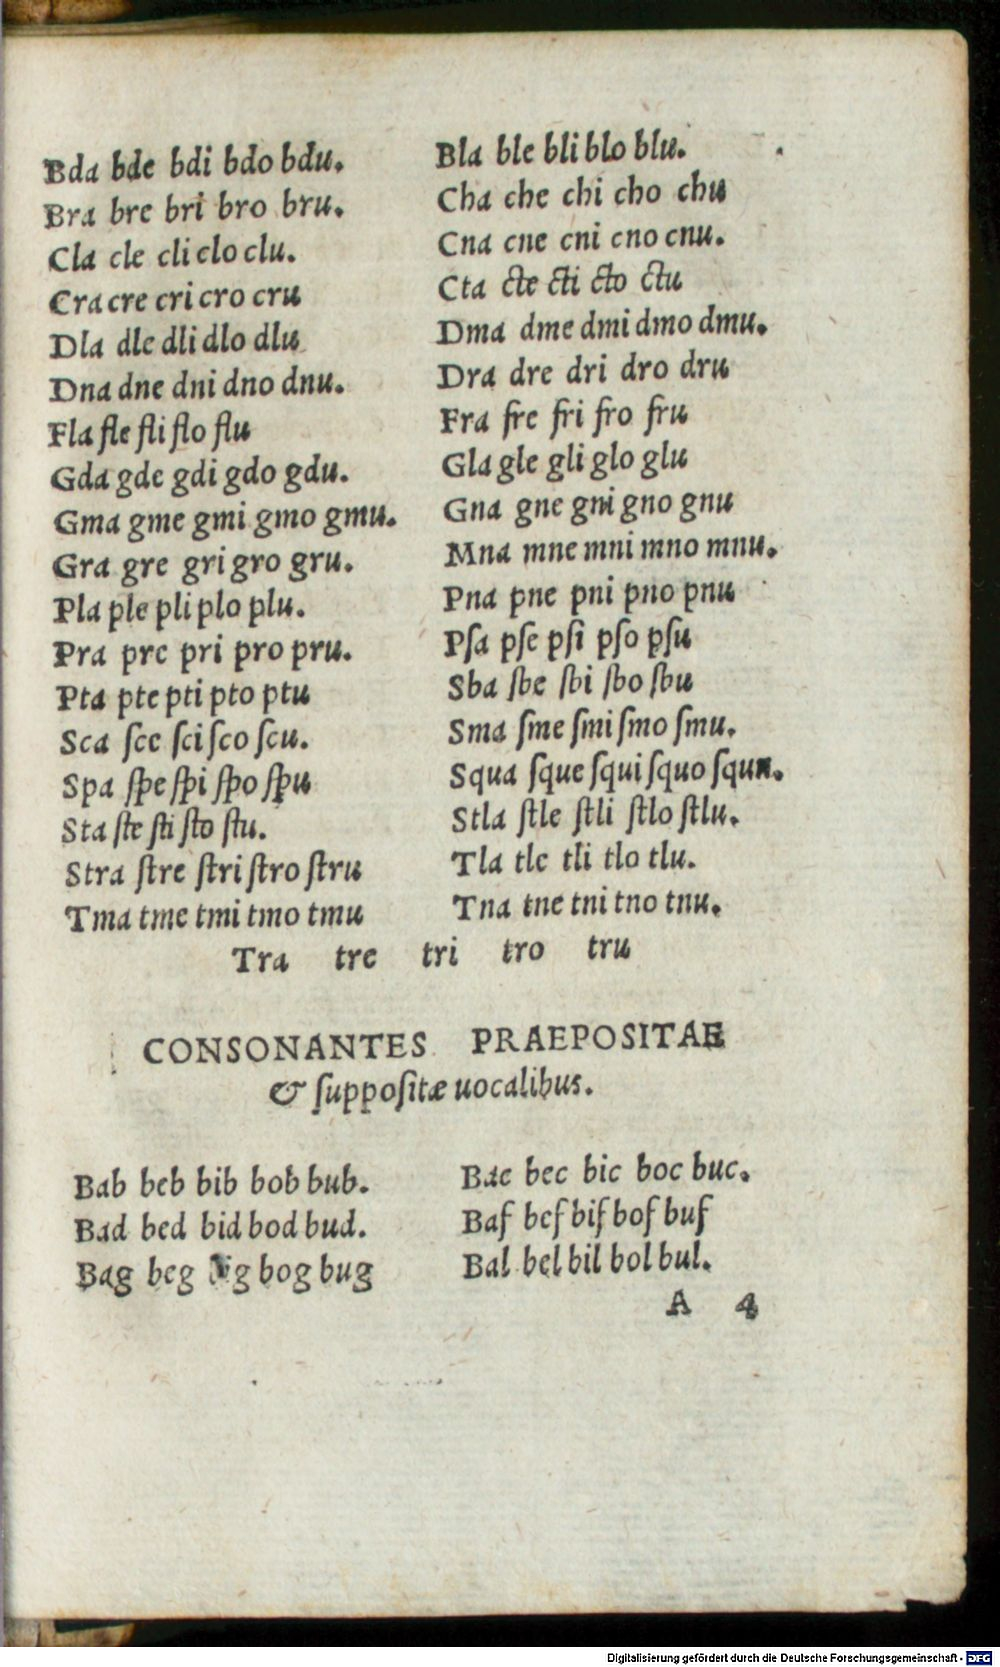 Bda bde bdi bdo bdu.
Bra bre bri bro bru.
Cla cle cli clo clu.
Cra cre cri cro cru
Dla dle dli dlo dlu
Dna dne dni dno dnu.
Fla fle fli flo flu
Gda gde gdi gdo gdu.
Gma gme gmi gmo gmu.
Gra gre gri gro gru.
Pla ple pli plo plu.
Pra pre pri pro pru.
Pta pte pti pto ptu
Sca ſce ſci ſco ſcu.
Spa ſpe ſpi ſpo ſpu
Sta ſte ſti ſto ſtu.
Stra ſtre ſtri ſtro ſtru
Tma tme tmi tmo tmu
Bla ble bli blo blu.
Cha che chi cho chu
Cna cne cni cno cnu.
Cta cte cti cto ctu
Dma dme dmi dmo dmu.
Dra dre dri dro dru
Fra fre fri fro fru
Gla gle gli glo glu
Gna gne gni gno gnu
Mna mne mni mno mnu.
Pna pne pni pno pnu
Pſa pſe pſi pſo pſu
Sba ſbe ſbi ſbo ſbu
Sma ſme ſmi ſmo ſmu.
Squa ſque ſqui ſquo ſquu.
Stla ſtle ſtli ſtlo ſtlu.
Tla tle tli tlo tlu.
Tna tne tni tno tnu.
Tra tre tri tro tru
CONSONANTES PRAEPOSITAE
& ſuppoſitæ uocalibus.
Bab beb bib bob bub.
Bad bed bid bod bud.
Bag beg bog bug
Bac bec bic boc buc.
Baf bef bif bof buf
Bal bel bil bol bul.
A 4
Digitalisierung gefördert durch die Deutsche Forschungsgemeinschaft - DFG